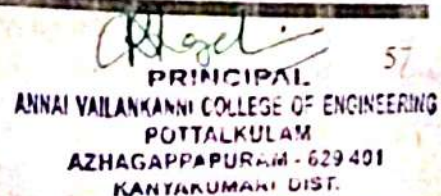 57
PRINCIPAL
ANNAI VAILANKANNI COLLEGE OF ENGINEERING
POTTALKULAM
AZHAGAPPAPURAM - 629 401
KANYAKUMARI DIST.